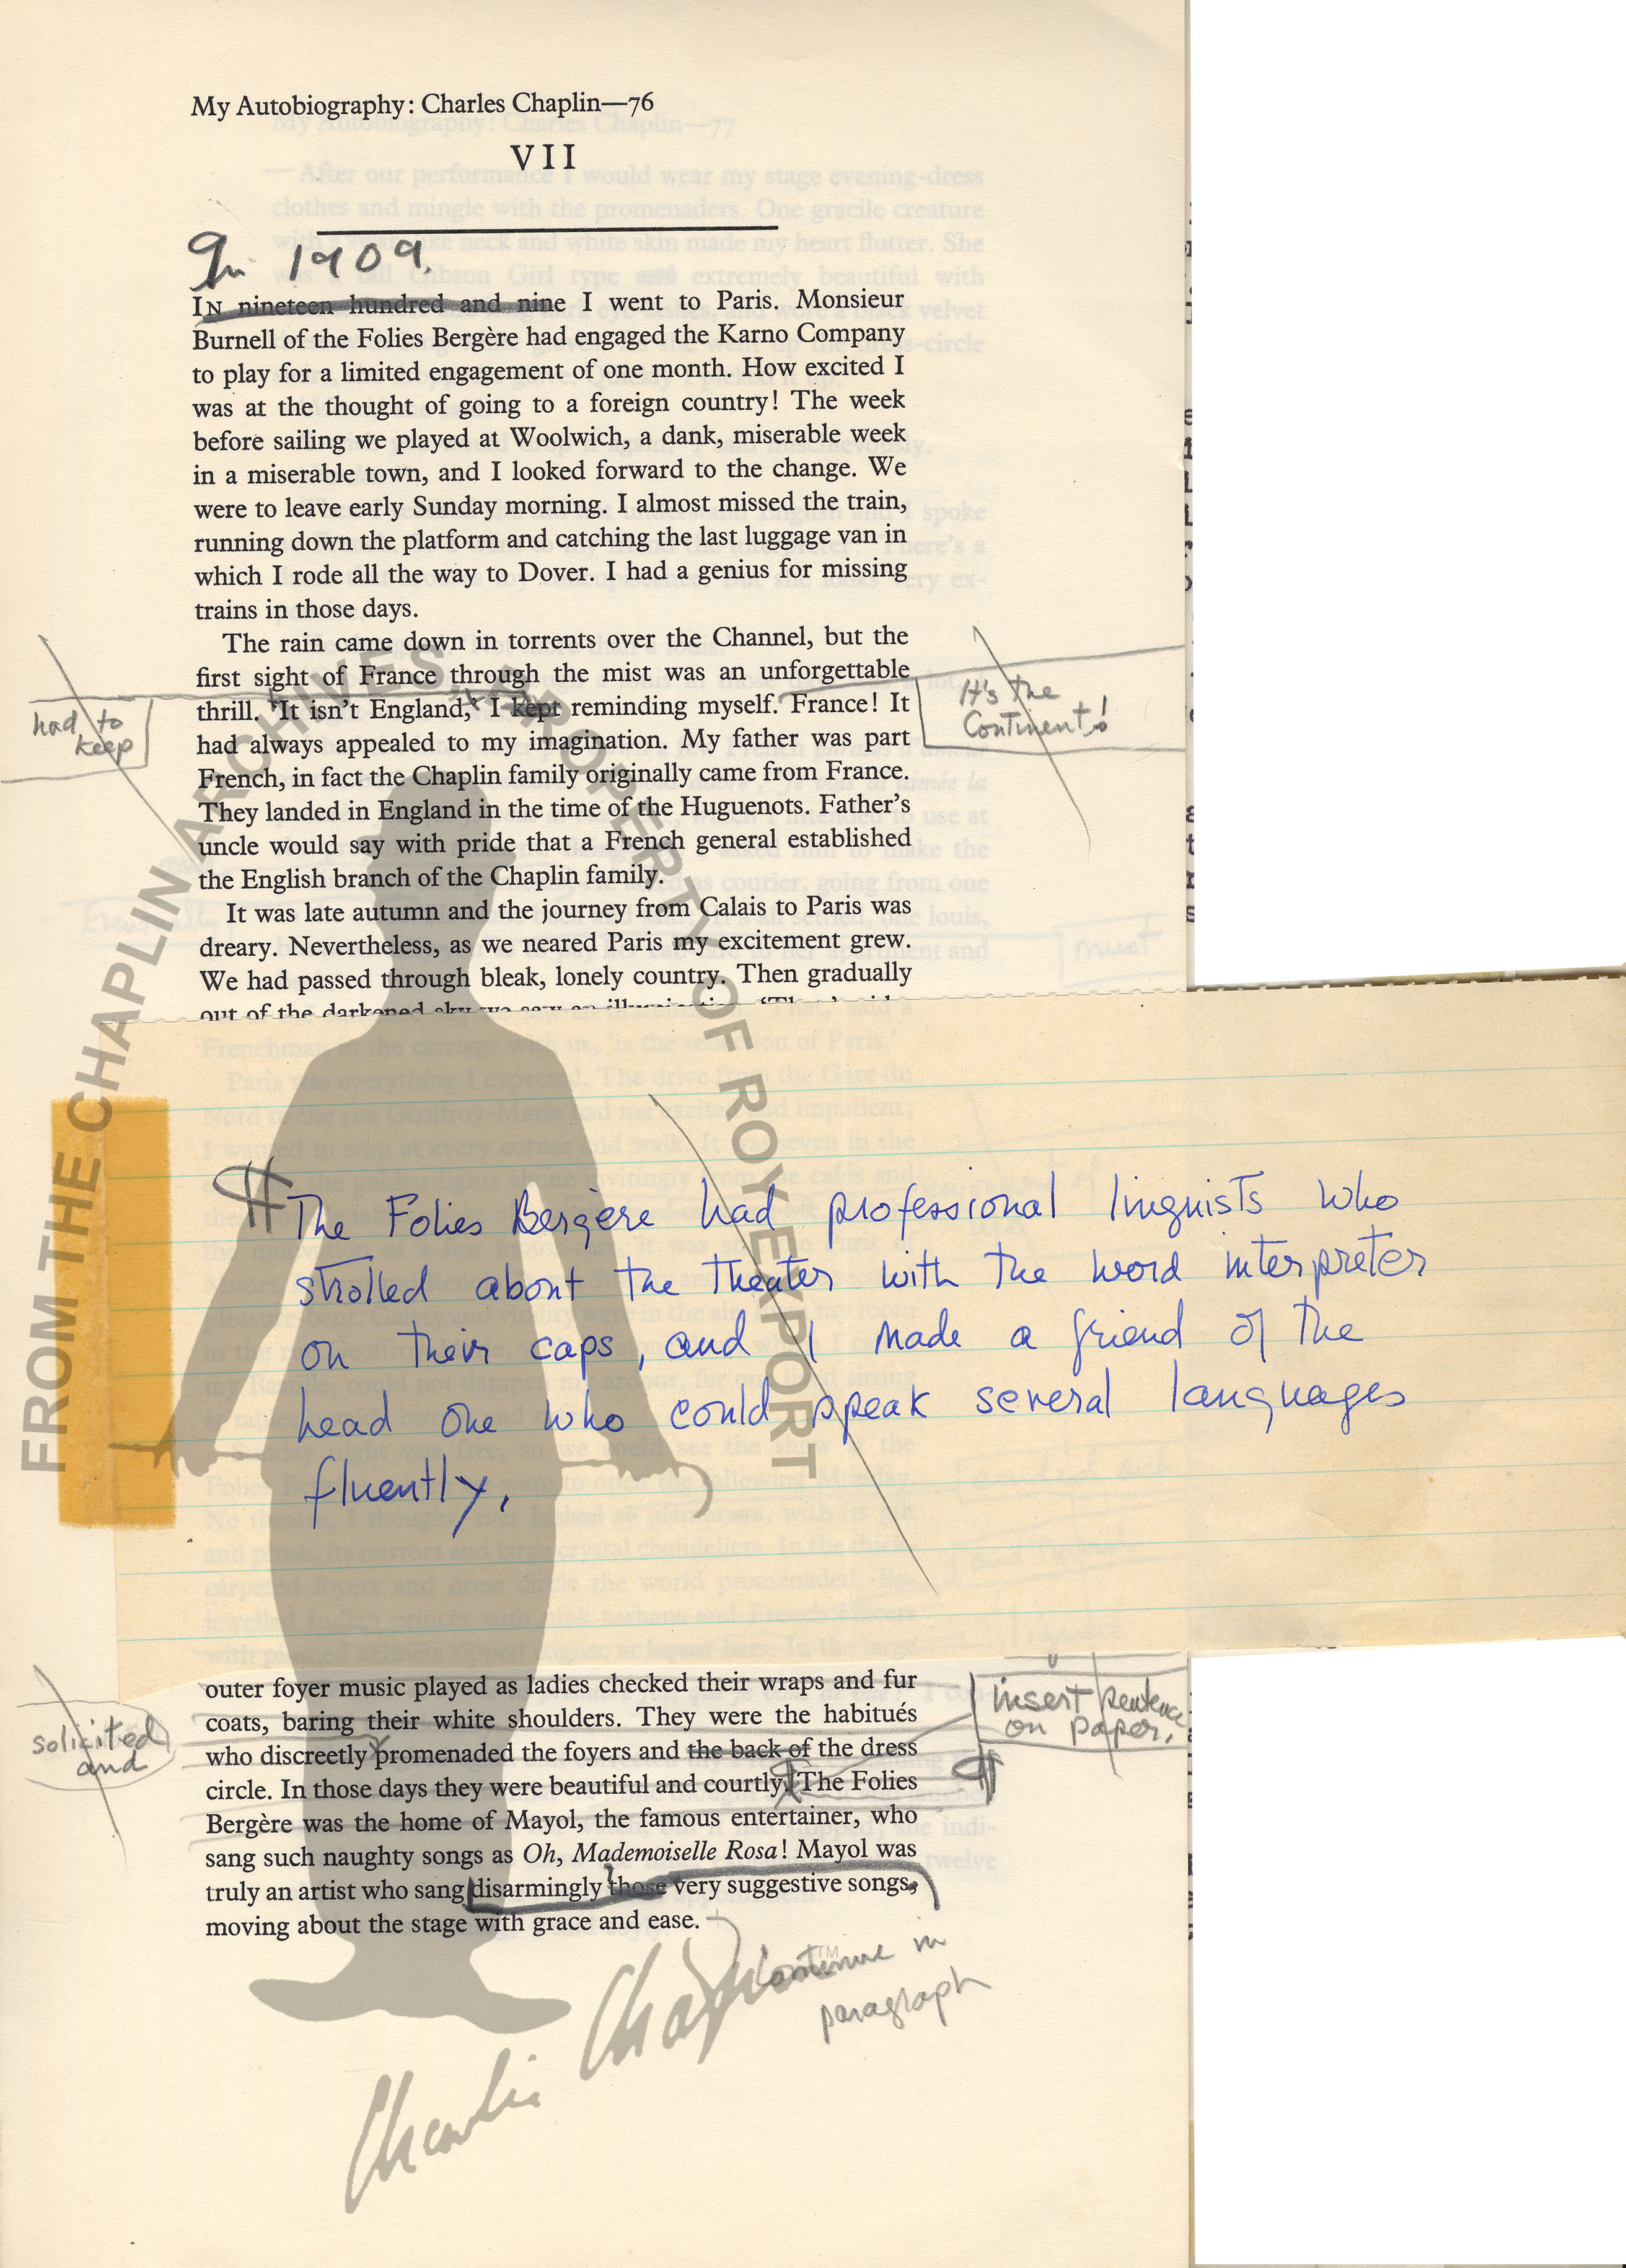 My Autobiography: Charles Chaplin—76
VII
In 1909.
IN nineteen hundred and nine I went to Paris. Monsieur
Burnell of the Folies Bergère had engaged the Karno Company
to play for a limited engagement of one month. How excited I
was at the thought of going to a foreign country! The week
before sailing we played at Woolwich, a dank, miserable week
in a miserable town, and I looked forward to the change. We
were to leave early Sunday morning. I almost missed the train,
running down the platform and catching the last luggage van in
which I rode all the way to Dover. I had a genius for missing
trains in those days.
The rain came down in torrents over the Channel, but the
first sight of France through the mist was an unforgettable
thrill. 'It isn't England,' I kept reminding myself. France! It
had to
keep
It's the
Continent!
had always appealed to my imagination. My father was part
French, in fact the Chaplin family originally came from France.
They landed in England in the time of the Huguenots. Father's
uncle would say with pride that a French general established
the English branch of the Chaplin family.
It was late autumn and the journey from Calais to Paris was
dreary. Nevertheless, as we neared Paris my excitement grew.
We had passed through bleak, lonely country. Then gradually
out of the darkened sky we saw an illumination. 'That,' said a
Frenchman in the carriage with us, 'is the reflection of Paris.'
¶ The Folies Bergère had professional linguists who
strolled about the theater with the word interpreter
on their caps, and I made a friend of the
head one who could speak several languages
fluently,
outer foyer music played as ladies checked their wraps and fur
coats, baring their white shoulders. They were the habitués
who discreetly promenaded the foyers and the back of the dress
circle. In those days they were beautiful and courtly. ¶ The Folies
Bergère was the home of Mayol, the famous entertainer, who
sang such naughty songs as Oh, Mademoiselle Rosa! Mayol was
truly an artist who sang disarmingly those very suggestive songs,
moving about the stage with grace and ease.
solicited
and
insert sentence
on paper.
¶
Continue in
paragraph
FROM THE CHAPLIN ARCHIVES, PROPERTY OF ROY EXPORT
Charlie Chaplin
TM